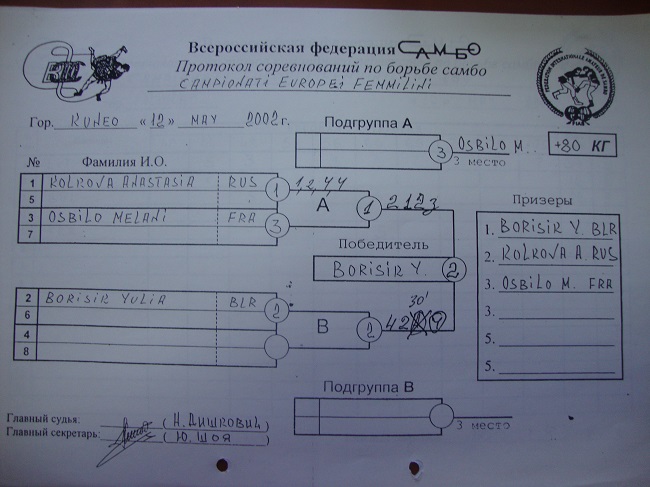 Всероссийская федерация САМБО
Протокол соревнований по борьбе самбо
CAMPIONATI EUROPEI FEMMILINI
Гор. KUNEO «12» MAY 2002 г.
Подгруппа А
3 OSBILO M.
3 место
+80 КГ
№ Фамилия И.О.
1 KOLKOVA ANASTASIA RUS
5
3 OSBILO MELANI FRA
7
1
3
А
1
Победитель
BORISIR Y. 2
Призеры
1. BORISIR Y. BLR
2. KOLKOVA A. RUS
3. OSBILO M. FRA
3.
5.
5.
2 BORISIR YULIA BLR
6
4
8
2
В
2
30'
Подгруппа В
3 место
Главный судья: (Н. ДИШКОВИЦ)
Главный секретарь: (Ю. ШОЯ)